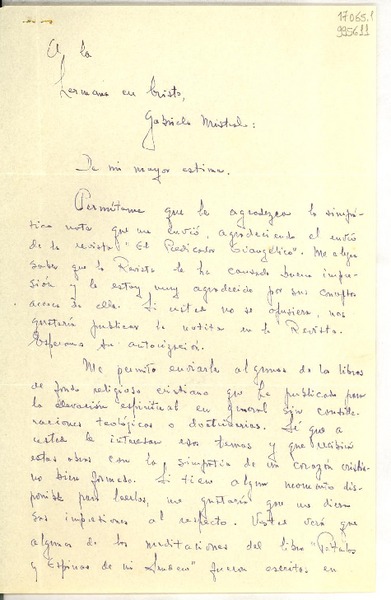 17065.1
995611
A la
Hermana en Cristo,
Gabriela Mistral:
De mi mayor estima.
Permítame que le agradezca la simpá-
tica nota que me envió, agradeciendo el envío
de la revista "El Predicador Evangélico". Me alegra
saber que la Revista le ha causado buena impre-
sión y le estoy muy agradecido por sus conceptos
acerca de ella. Si usted no se opusiera, nos
gustaría publicar la notita en la Revista.
Esperamos su autorización.
Me permito enviarle algunos de los libros
de fondo religioso cristiano que he publicado para
la elevación espiritual en general sin conside-
raciones teológicas o doctrinarias. Sé que a
usted le interesan esos temas y que recibirá
estas obras con la simpatía de un corazón cristia-
no bien formado. Si tiene algún momento dis-
ponible para leerlos, me gustaría que me diera
sus impresiones al respecto. Usted verá que
algunas de las meditaciones del libro "Pétalos
y Espinas de mi" fueron escritas en